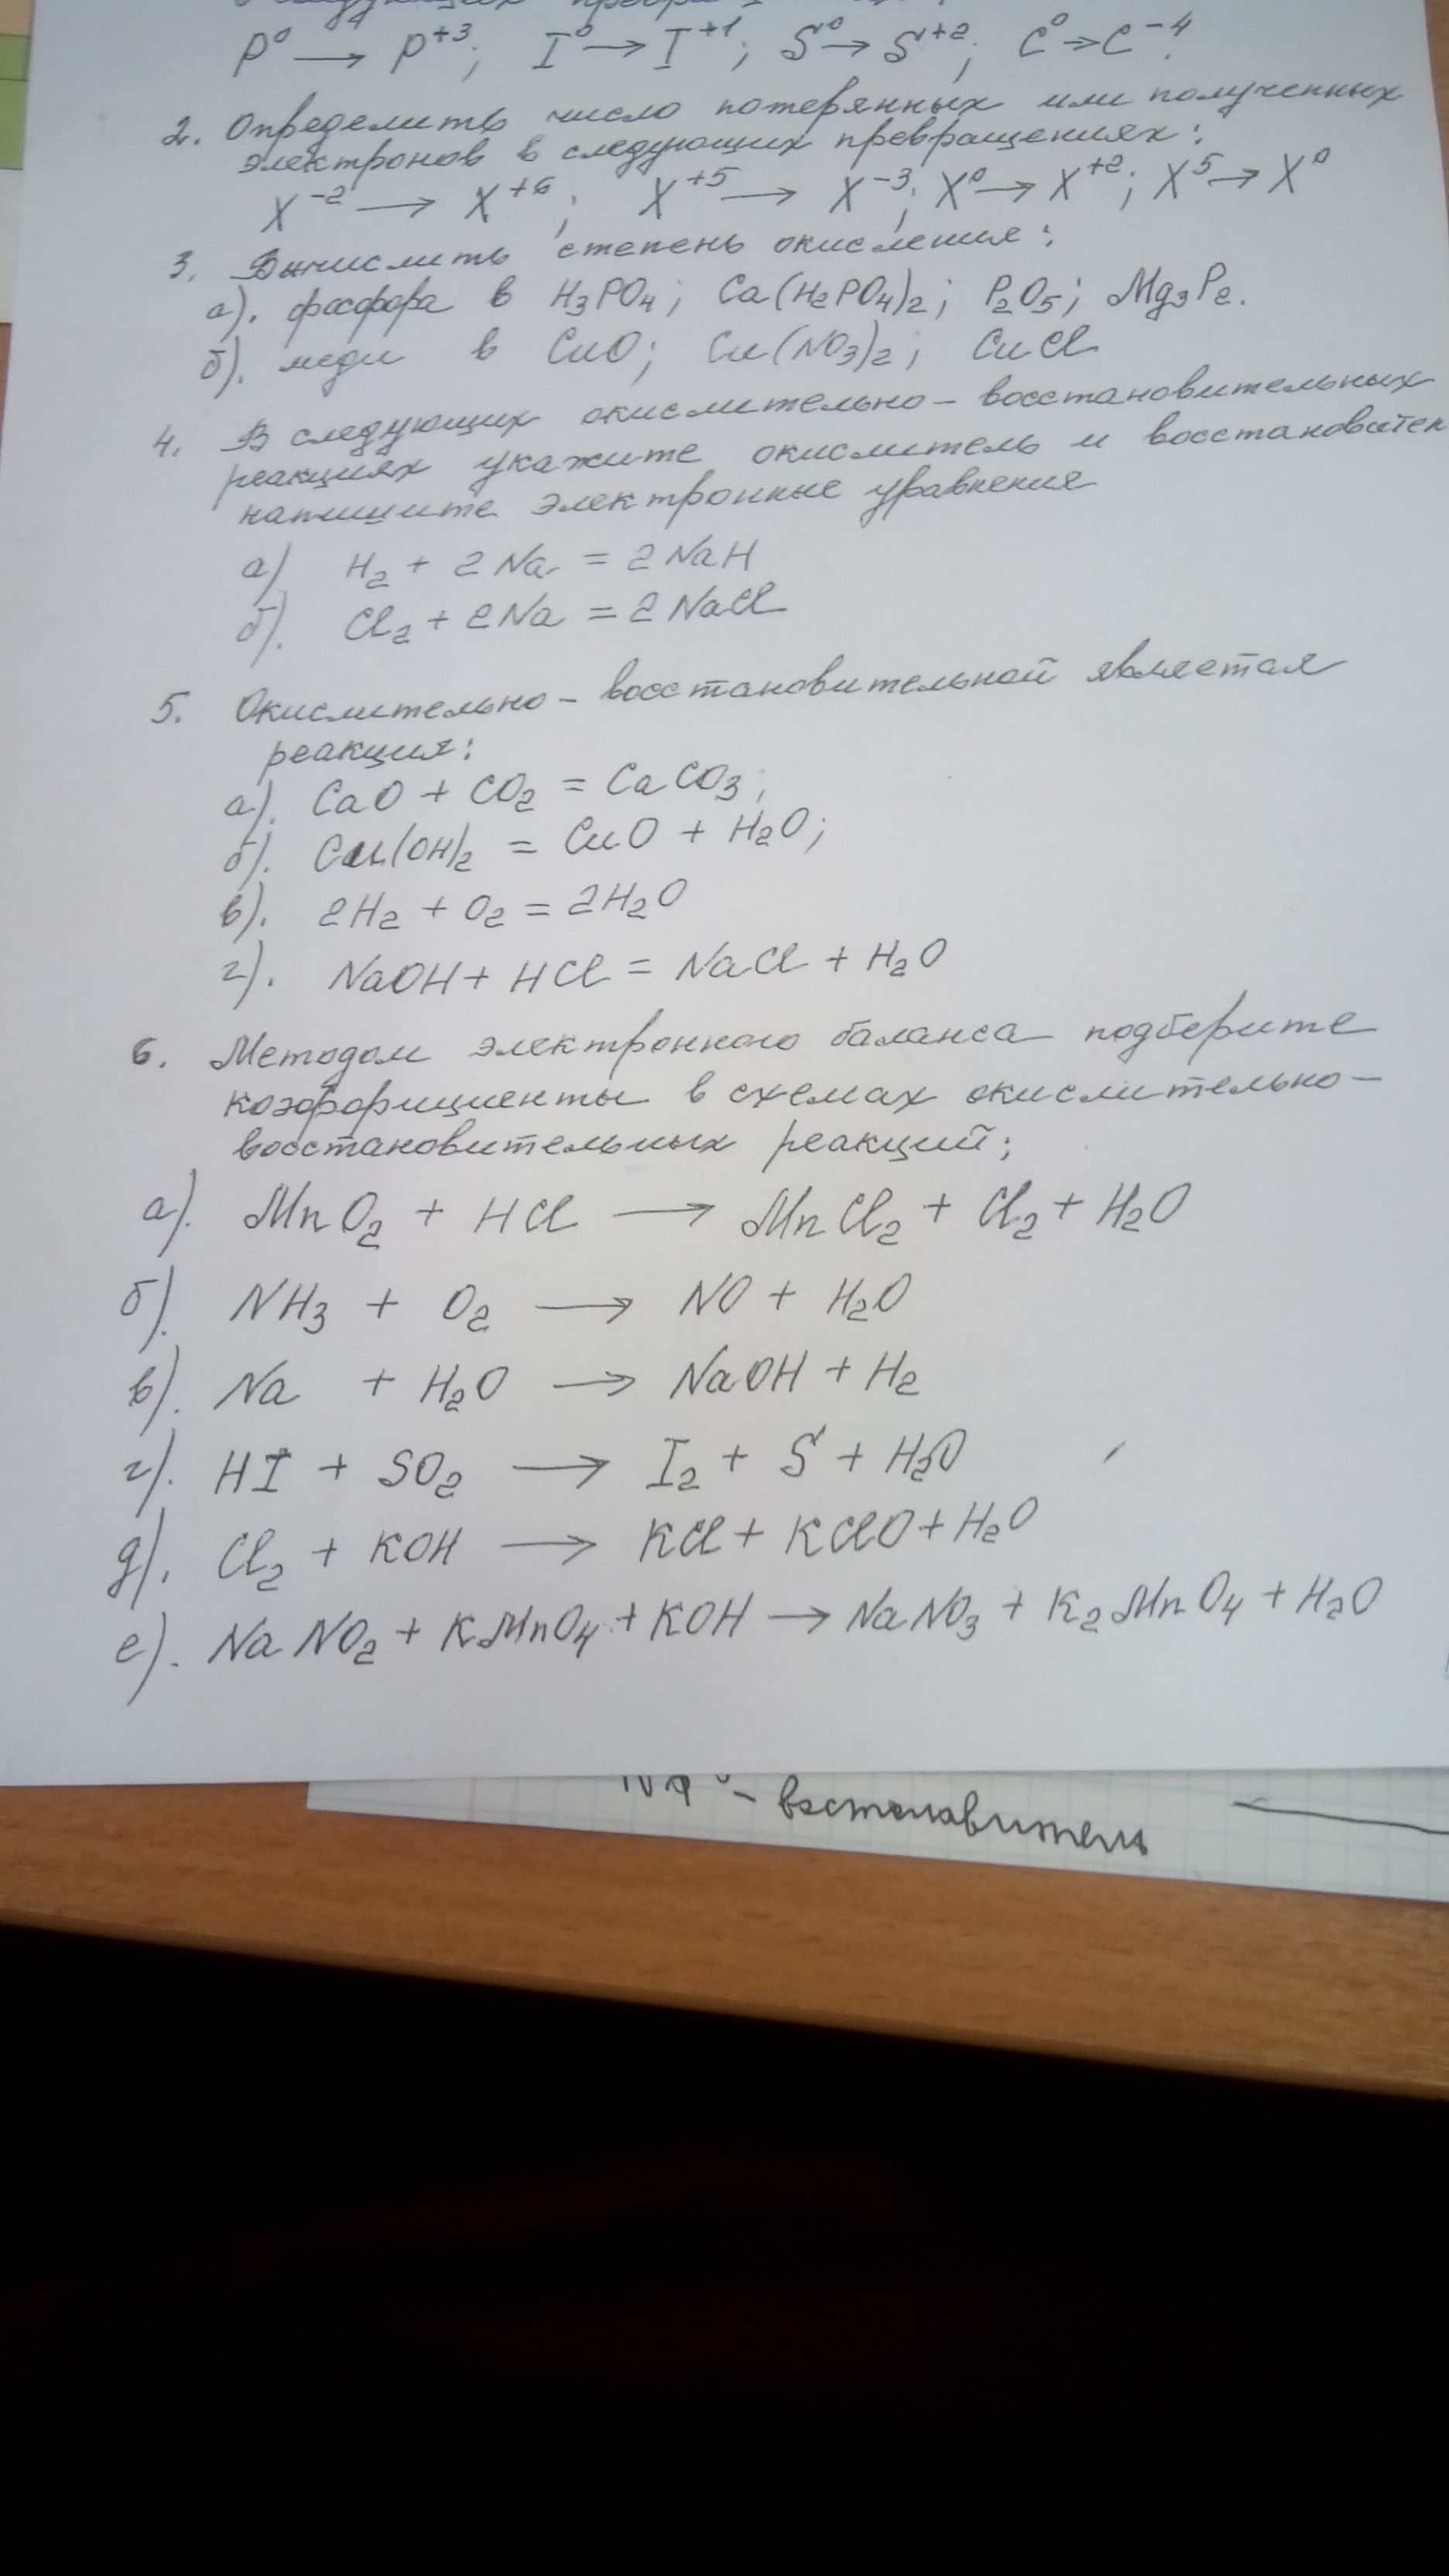 следующих
P⁰ → P⁺³; I⁰ → I⁺¹; S⁰ → S⁺²; C⁰ → C⁻⁴.
2. Определить число потерянных или полученных
электронов в следующих превращениях:
X⁻² → X⁺⁶; X⁺⁵ → X⁻³; X⁰ → X⁺²; X⁵ → X⁰
3. Вычислить степень окисления:
а). фосфора в H₃PO₄; Ca(H₂PO₄)₂; P₂O₅; Mg₃P₂.
б). меди в CuO; Cu(NO₃)₂; CuCl
4. В следующих окислительно-восстановительных
реакциях укажите окислитель и восстановител
напишите электронные уравнения
а) H₂ + 2Na = 2NaH
б). Cl₂ + 2Na = 2NaCl
5. Окислительно-восстановительной является
реакция:
а). CaO + CO₂ = CaCO₃;
б). Cu(OH)₂ = CuO + H₂O;
в). 2H₂ + O₂ = 2H₂O
г). NaOH + HCl = NaCl + H₂O
6. Методом электронного баланса подберите
коэффициенты в схемах окислительно-
восстановительных реакций;
а). MnO₂ + HCl → MnCl₂ + Cl₂ + H₂O
б). NH₃ + O₂ → NO + H₂O
в). Na + H₂O → NaOH + H₂
г). HI + SO₂ → I₂ + S + H₂O
д). Cl₂ + KOH → KCl + KClO + H₂O
е). NaNO₂ + KMnO₄ + KOH → NaNO₃ + K₂MnO₄ + H₂O
Na⁰ -